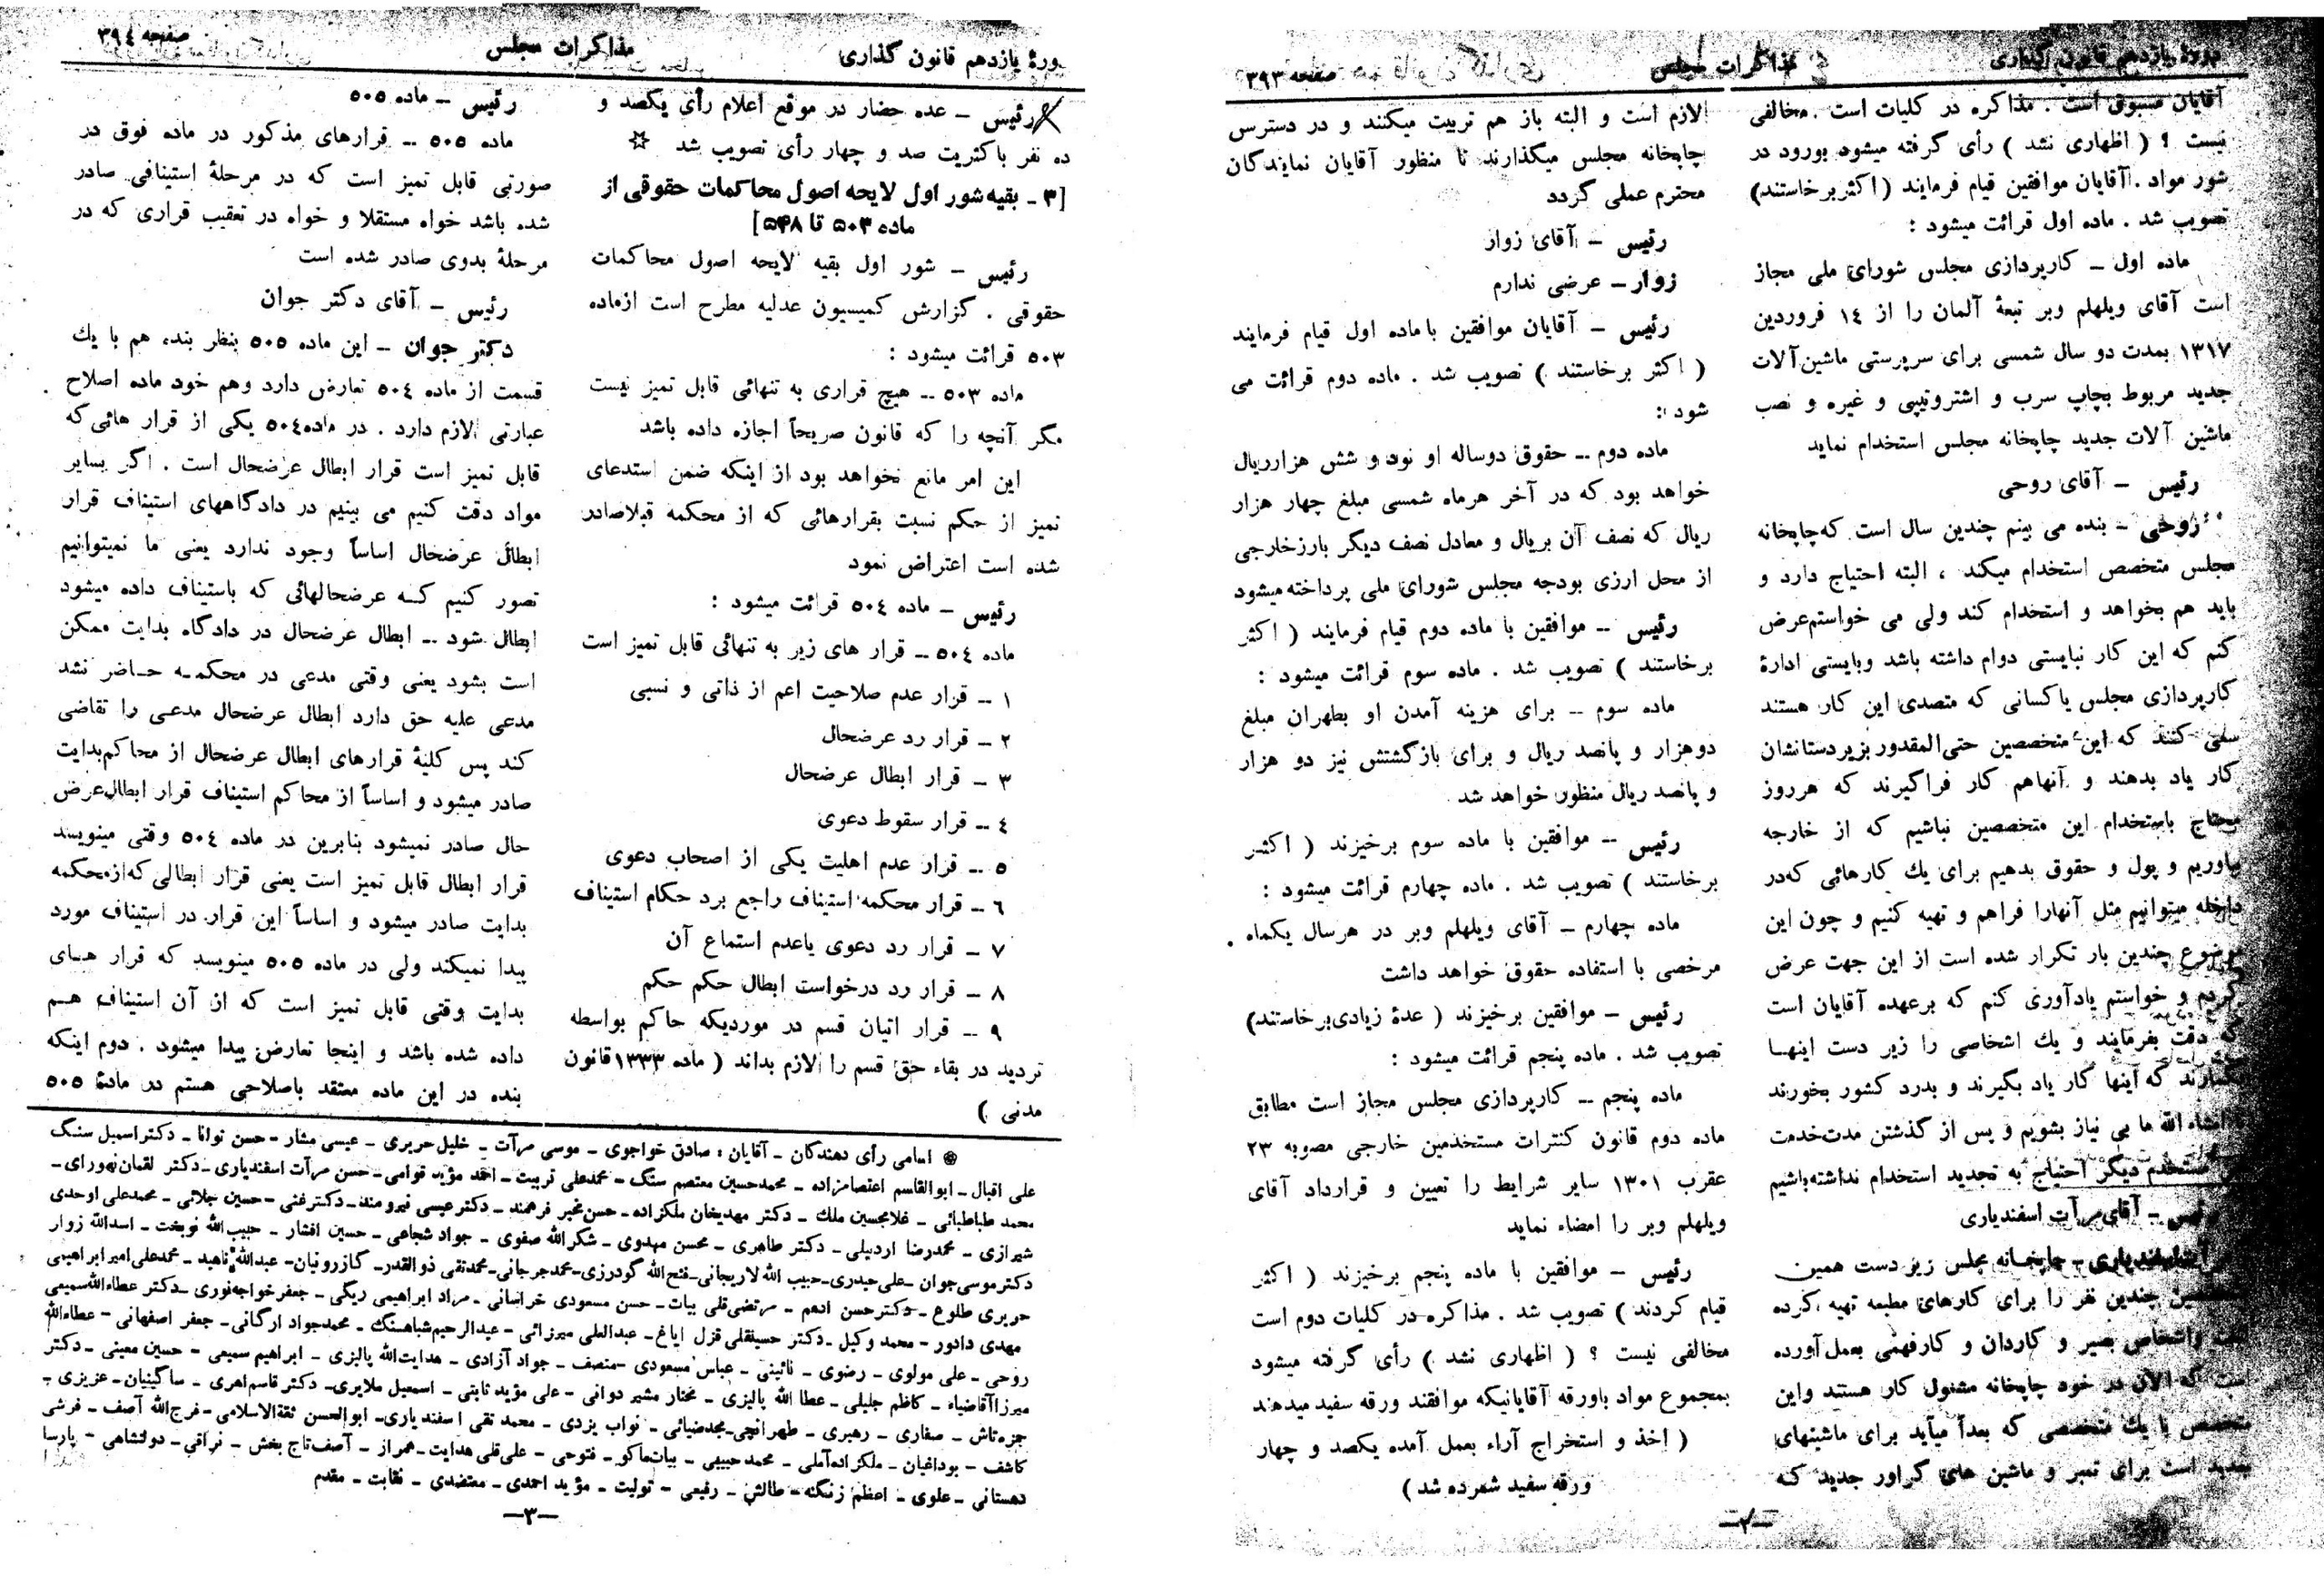 دورهٔ یازدهم قانون گذاری
مذاکرات مجلس
صفحه ۳۹۳
آقایان مسبوق است . مذاکره در کلیات است . مخالفی
نیست ؟ ( اظهاری نشد ) رأی گرفته میشود بورود در
شور مواد . آقایان موافقین قیام فرمایند (اکثر برخاستند)
تصویب شد . ماده اول قرائت میشود :
ماده اول ــ کارپردازی مجلس شورای ملی مجاز
است آقای ویلهلم وبر تبعهٔ آلمان را از ١٤ فروردین
۱۳۱۷ بمدت دو سال شمسی برای سرپرستی ماشین‌آلات
جدید مربوط بچاپ سرب و اشتروتیپی و غیره و نصب
ماشین آلات جدید چاپخانه مجلس استخدام نماید
رئیس ــ آقای روحی
روحی ــ بنده می بینم چندین سال است که چاپخانه
مجلس متخصص استخدام میکند ، البته احتیاج دارد و
باید هم بخواهد و استخدام کند ولی می خواستم عرض
کنم که این کار نبایستی دوام داشته باشد وبایستی ادارهٔ
کارپردازی مجلس یا کسانی که متصدی این کار هستند
سعی کنند که این متخصصین حتی‌المقدور بزیردستانشان
کار یاد بدهند و آنهاهم کار فراگیرند که هرروز
محتاج باستخدام این متخصصین نباشیم که از خارجه
بیاوریم و پول و حقوق بدهیم برای یك کارهائی که در
داخله میتوانیم مثل آنهارا فراهم و تهیه کنیم و چون این
موضوع چندین بار تکرار شده است از این جهت عرض
کردم و خواستم یادآوری کنم که برعهده آقایان است
که دقت بفرمایند و یك اشخاصی را زیر دست اینهــا
بگمارند که آینها کار یاد بگیرند و بدرد کشور بخورند
انشاء الله ما بی نیاز بشویم و پس از گذشتن مدت خدمت
مستخدم دیگر احتیاج به تجدید استخدام نداشته باشیم
رئیس ــ آقای مرآت اسفندیاری
اسفندیاری ــ چاپخــانه مجلس زیر دست همین
متخصصین چندین نفر را برای کارهای مطبعه تهیه کرده
است واشخاص بصیر و کاردان و کارفهمی بعمل آورده
است که الآن در خود چاپخانه مشغول کار هستند واین
متخصص یا یك متخصصی که بعداً میآید برای ماشینهای
جدید است برای تمبر و ماشین های گراور جدید کــه
لازم است و البته باز هم تربیت میکنند و در دسترس
چاپخانه مجلس میگذارند تا منظور آقایان نمایندگان
محترم عملی گردد
رئیس ــ آقای زوار
زوار ــ عرضی ندارم
رئیس ــ آقایان موافقین با ماده اول قیام فرمایند
( اکثر برخاستند ) تصویب شد . ماده دوم قرائت می
شود :
ماده دوم ــ حقوق دوساله او نود و شش هزارریال
خواهد بود که در آخر هرماه شمسی مبلغ چهار هزار
ریال که نصف آن بریال و معادل نصف دیگر بارزخارجی
از محل ارزی بودجه مجلس شورای ملی پرداخته میشود
رئیس ــ موافقین با ماده دوم قیام فرمایند ( اکثر
برخاستند ) تصویب شد . ماده سوم قرائت میشود :
ماده سوم ــ برای هزینه آمدن او بطهران مبلغ
دوهزار و پانصد ریال و برای بازگشتش نیز دو هزار
و پانصد ریال منظور خواهد شد
رئیس ــ موافقین با ماده سوم برخیزند ( اکثــر
برخاستند ) تصویب شد . ماده چهارم قرائت میشود :
ماده چهارم ــ آقای ویلهلم وبر در هرسال یکماه
مرخصی با استفاده حقوق خواهد داشت
رئیس ــ موافقین برخیزند ( عدهٔ زیادی برخاستند)
تصویب شد . ماده پنجم قرائت میشود :
ماده پنجم ــ کارپردازی مجلس مجاز است مطابق
ماده دوم قانون کنترات مستخدمین خارجی مصوبه ۲۳
عقرب ۱۳۰۱ سایر شرایط را تعیین و قرارداد آقای
ویلهلم وبر را امضاء نماید
رئیس ــ موافقین با ماده پنجم برخیزند ( اکثر
قیام کردند ) تصویب شد . مذاکره در کلیات دوم است
مخالفی نیست ؟ ( اظهاری نشد ) رأی گرفته میشود
بمجموع مواد باورقه آقایانیکه موافقند ورقه سفید میدهند
( اخذ و استخراج آراء بعمل آمده یکصد و چهار
ورقه سفید شمرده شد )
ــ۲ــ
ورهٔ یازدهم قانون گذاری
مذاکرات مجلس
صفحه ۳۹٤
رئیس ــ عده حضار در موقع اعلام رأی یکصد و
ده نفر باکثریت صد و چهار رأی تصویب شد ☆
[۳ ــ بقیه شور اول لایحه اصول محاکمات حقوقی از
ماده ۵۰۳ تا ۵۴۸]
رئیس ــ شور اول بقیه لایحه اصول محاکمات
حقوقی . گزارش کمیسیون عدلیه مطرح است ازماده
۵۰۳ قرائت میشود :
ماده ۵۰۳ ــ هیچ قراری به تنهائی قابل تمیز نیست
مگر آنچه را که قانون صریحاً اجازه داده باشد
این امر مانع نخواهد بود از اینکه ضمن استدعای
تمیز از حکم نسبت بقرارهائی که از محکمه قبلاصادر
شده است اعتراض نمود
رئیس ــ ماده ٥٠٤ قرائت میشود :
ماده ٥٠٤ ــ قرار های زیر به تنهائی قابل تمیز است
۱ ــ قرار عدم صلاحیت اعم از ذاتی و نسبی
۲ ــ قرار رد عرضحال
۳ ــ قرار ابطال عرضحال
٤ ــ قرار سقوط دعوی
٥ ــ قرار عدم اهلیت یکی از اصحاب دعوی
٦ ــ قرار محکمه استیناف راجع برد حکام استیناف
۷ ــ قرار رد دعوی یاعدم استماع آن
۸ ــ قرار رد درخواست ابطال حکم حکم
۹ ــ قرار اتیان قسم در موردیکه حاکم بواسطه
تردید در بقاء حق قسم را لازم بداند ( ماده ۱۳۳۳ قانون
مدنی )
رئیس ــ ماده ٥٠٥
ماده ٥٠٥ ــ قرارهای مذکور در ماده فوق در
صورتی قابل تمیز است که در مرحلهٔ استینافی صادر
شده باشد خواه مستقلا و خواه در تعقیب قراری که در
مرحلهٔ بدوی صادر شده است
رئیس ــ آقای دکتر جوان
دکتر جوان ــ این ماده ٥٠٥ بنظر بنده هم با یك
قسمت از ماده ٥٠٤ تعارض دارد وهم خود ماده اصلاح
عبارتی لازم دارد . در ماده ٥٠٤ یکی از قرار هائی که
قابل تمیز است قرار ابطال عرضحال است . اگر بسایر
مواد دقت کنیم می بینیم در دادگاههای استیناف قرار
ابطال عرضحال اساساً وجود ندارد یعنی ما نمیتوانیم
تصور کنیم کــه عرضحالهائی که باستیناف داده میشود
ابطال شود ــ ابطال عرضحال در دادگاه بدایت ممکن
است بشود یعنی وقتی مدعی در محکمــه حــاضر نشد
مدعی علیه حق دارد ابطال عرضحال مدعــی را تقاضی
کند پس کلیهٔ قرارهای ابطال عرضحال از محاکم بدایت
صادر میشود و اساساً از محاکم استیناف قرار ابطال عرض
حال صادر نمیشود بنابرین در ماده ٥٠٤ وقتی مینویسد
قرار ابطال قابل تمیز است یعنی قرار ابطالی که ازمحکمه
بدایت صادر میشود و اساساً این قرار در استیناف مورد
پیدا نمیکند ولی در ماده ٥٠٥ مینویسد که قرار هــای
بدایت وقتی قابل تمیز است که از آن استیناف هــم
داده شده باشد و اینجا تعارض پیدا میشود . دوم اینکه
بنده در این ماده معتقد باصلاحی هستم در مادهٔ ٥٠٥
⊛ اسامی رأی دهندگان ــ آقایان : صادق خواجوی ــ موسی مرآت ــ خلیل حریری ــ عیسی مشار ــ حسن توانا ــ دکتر اسمعیل سنگ
علی اقبال ــ ابوالقاسم اعتصامزاده ــ محمدحسین معتصم سنگ ــ محمدعلی تربیت ــ احمد مؤید قوامی ــ حسن مرآت اسفندیاری ــ دکتر لقمان نهورای ــ
محمد طباطبائی ــ غلامحسین ملك ــ دکتر مهدیخان ملکزاده ــ حسن مخبر فرهمند ــ دکتر عیسی نیرومند ــ دکتر غنی ــ حسین جلائی ــ محمدعلی اوحدی
شیرازی ــ محمدرضا اردبیلی ــ دکتر طاهری ــ محسن مهدوی ــ شکرالله صفوی ــ جواد شجاعی ــ حسین افشار ــ حبیب‌الله نوبخت ــ اسدالله زوار
دکتر موسی جوان ــ علی حیدری ــ حبیب الله لاریجانی ــ فتح‌الله گودرزی ــ محمد جرجانی ــ محمدتقی ذوالقدر ــ گازرونیان ــ عبدالله ناهید ــ محمدعلی امیرابراهیمی
حریری طلوع ــ دکتر حسن ادهم ــ مرتضی قلی بیات ــ حسن مسعودی خراسانی ــ مراد ابراهیمی ریگی ــ جعفر خواجه‌نوری ــ دکتر عطاءالله سمیعی
مهدی دادور ــ محمد وکیل ــ دکتر حسینقلی قزل ایاغ ــ عبدالعلی میرزائی ــ عبدالرحیم شباهنگ ــ محمدجواد ارگانی ــ جعفر اصفهانی ــ عطاءالله
روحی ــ علی مولوی ــ رضوی ــ نائینی ــ عباس مسعودی ــ منصف ــ جواد آزادی ــ هدایت‌الله پالیزی ــ ابراهیم سمیعی ــ حسین معینی ــ دکتر
میرزاآقاضیاء ــ کاظم جلیلی ــ عطا الله پالیزی ــ مختار مشیر دوانی ــ علی مؤید ثابتی ــ اسمعیل ملایری ــ دکتر قاسم اهری ــ ساگینیان ــ عزیزی ــ
جزه تاش ــ صفاری ــ رهبری ــ طهرانچی ــ مجدضیائی ــ نواب یزدی ــ محمد تقی اسفندیاری ــ ابوالحسن ثقةالاسلامی ــ فرج‌الله آصف ــ فرشی
کاشف ــ بوداغیان ــ ملکزاده‌آملی ــ محمد حبیبی ــ بیات ماکو ــ فتوحی ــ علی قلی هدایت ــ همراز ــ آصف تاج بخش ــ نراقی ــ دولتشاهی ــ پارسا
دهستانی ــ علوی ــ اعظم زنگنه ــ طالش ــ رفیعی ــ تولیت ــ مؤید احمدی ــ معتضدی ــ نقابت ــ مقدم
ــ۳ــ